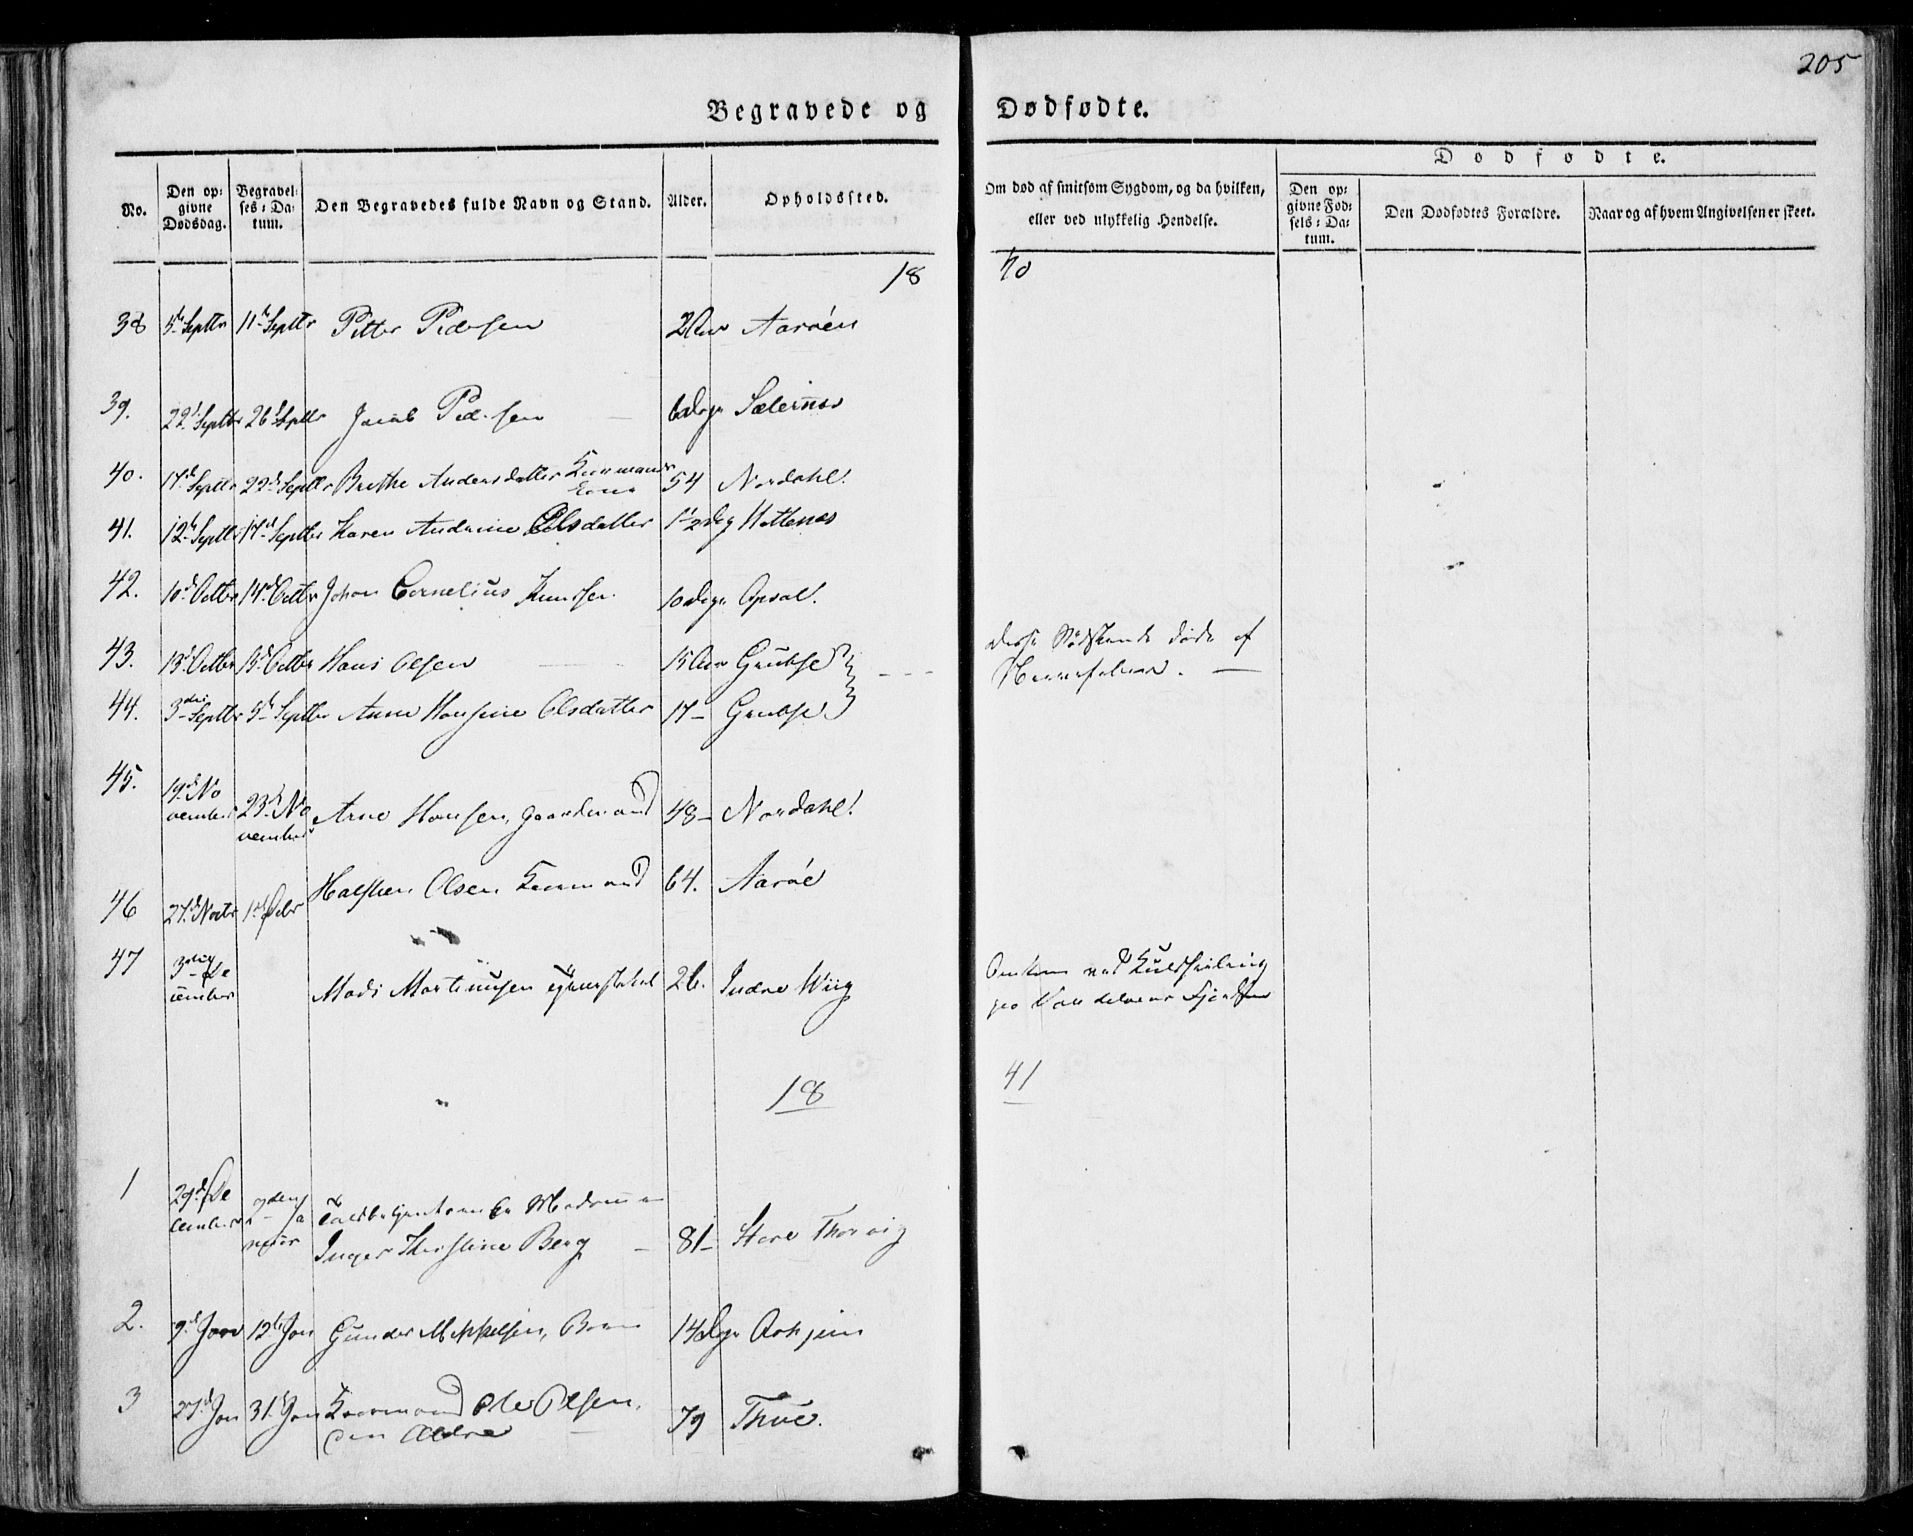 205
Begravede og Dødfødte.
No.
Den opgivne Dødsdag.
Begravelses-Datum.
Den Begravedes fulde Navn og Stand.
Alder.
Opholdssted.
Om død af smitsom Sygdom, og da hvilken,
eller ved ulykkelig Hendelse.
Dødfødte.
Den opgivne Fødsels-Datum.
Den Dødfødtes Forældre.
Naar og af hvem Angivelsen er skeet.
18 40
38 5te Septbr 11te Septbr Petter Pedersen 2 Aar Aarøen
39. 22d Septbr 26d Septbr Jacob Pedersen 6 Dage
40. 17d Septbr 22d Septbr Brethe Andersdatter Kaarmands Kone 54 Nordahl.
41. 12te Septbr 17d Septbr Karen Andrine Olsdatter 1½ Dag Hollenæs
42. 10d Octbr 14d Octbr Johan Cornelius Knudsen 10 Dage Opsal.
43. 13d Octbr 15d Octbr Hans Olsen 15 Aar Grubse
disse Sødskende døde af
Nervefeber.
44. 3die Septbr 5te Septbr Anne Hansine Olsdatter 17 Grubse
45. 19d November 23d November Arne Hansen, Gaardmand 48 Nordahl.
46 27d Novbr 1ste Decbr Halsten Olsen Kaarmand 64. Aarøe
47 3die December Mads Martinusen 26. Indre Wiig
Omkom ved Kuldseiling
paa Fjorden
18 41
1 29d December 2den Januar Madamme
Inger Kirstine Berg 81 Store Thorvig
2. 9d Jan 12te Jan Gunder Mikkelsen, Barn 14 Dage
3 27d Jan 31d Jan Kaarmand Ole Olsen,
den Ældre 79 Thue.